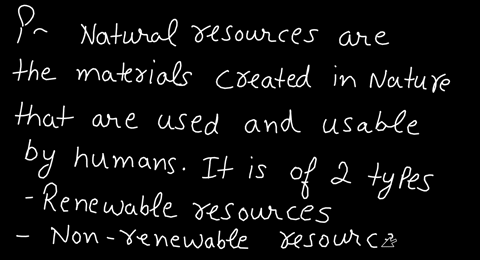 P~ Natural resources are
the materials created in Nature
that are used and usable
by humans. It is of 2 types
- Renewable resources
- Non-renewable resourc